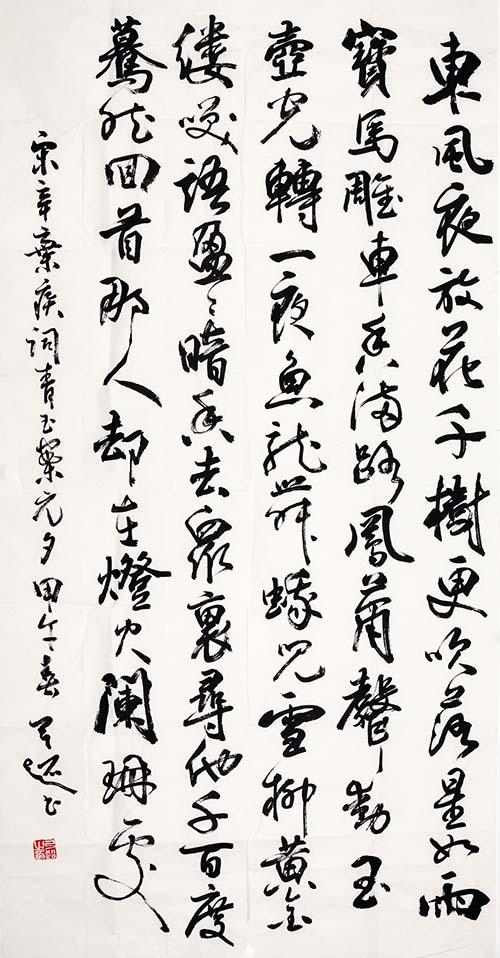 東風夜放花千樹更吹落星如雨
寶馬雕車香滿路鳳簫聲動玉
壺光轉一夜魚龍舞蛾兒雪柳黃金
縷笑語盈〻暗香去眾裏尋他千百度
驀然回首那人却在燈火闌珊處
宋辛棄疾詞青玉案元夕甲午春书